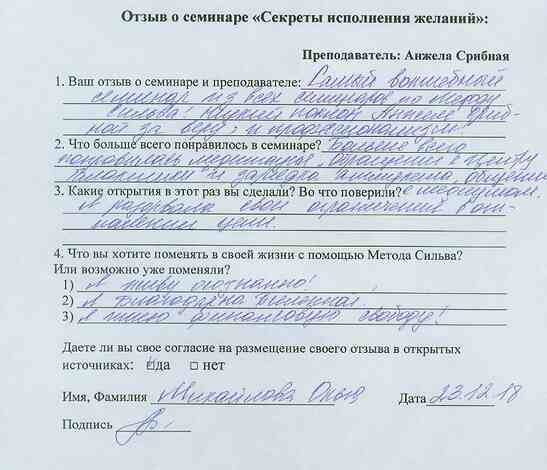 Отзыв о семинаре «Секреты исполнения желаний»:
Преподаватель: Анжела Срибная
1. Ваш отзыв о семинаре и преподавателе: Самый волшебный
семинар из всех семинаров по методу
Сильва! Низкий поклон Анжеле Сриб-
ной за веру и профессионализм.
2. Что больше всего понравилось в семинаре? Больше всего
понравились медитации, обращение к Центру
Вселенной и зарядка, общение
3. Какие открытия в этот раз вы сделали? Во что поверили? с
Я разорвала свои ограничения в от-
ношении цели.
4. Что вы хотите поменять в своей жизни с помощью Метода Сильва?
Или возможно уже поменяли?
1) Я живу осознанно!
2) Я благодарна вселенной.
3) Я имею финансовую свободу!
Даете ли вы свое согласие на размещение своего отзыва в открытых
источниках: да нет
Имя, Фамилия Михайлова Ольга Дата 23.12.18
Подпись